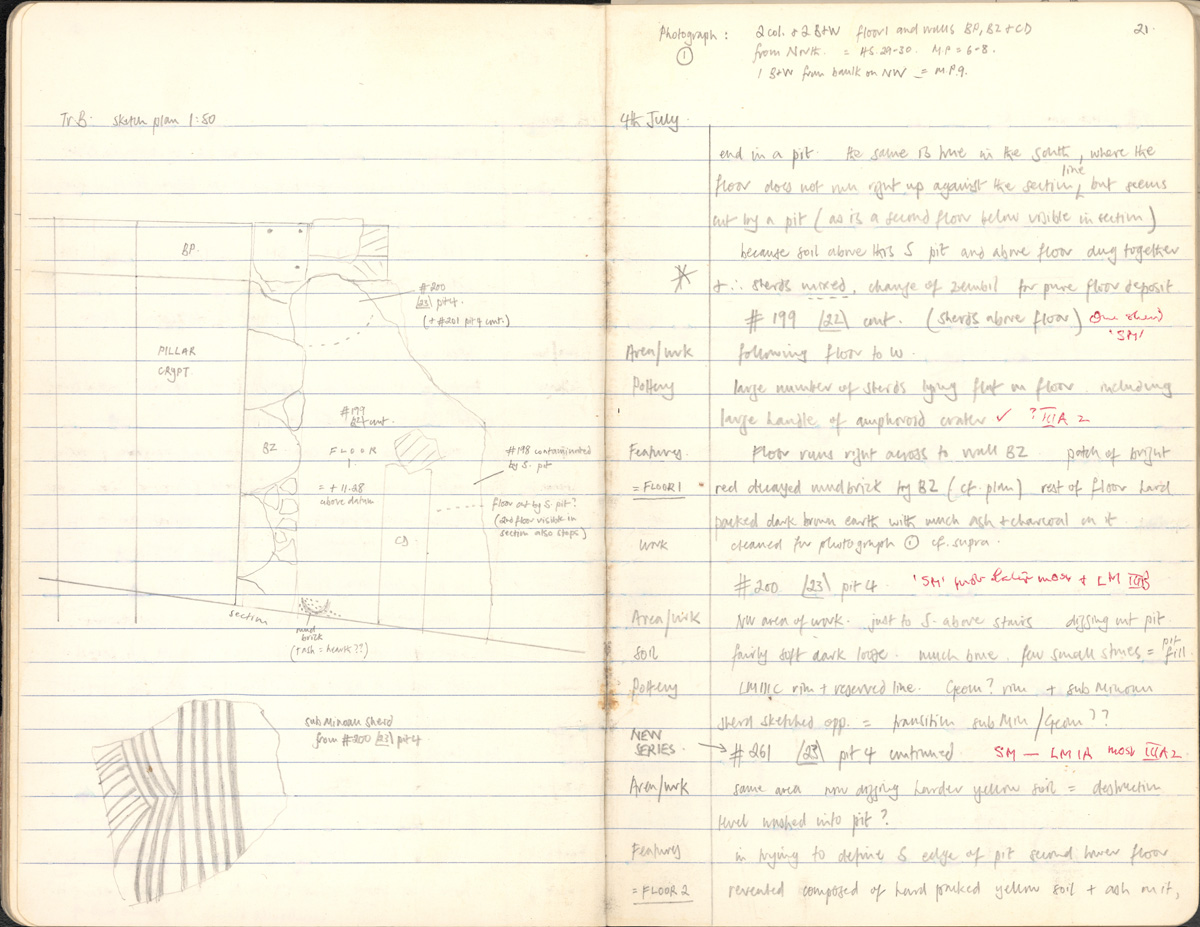 Tr. B. sketch plan 1:50
BP.
#200
[23] pit 4
(+ #201 pit 4 cont.)
PILLAR
CRYPT
#199
[22] cont.
BZ
FLOOR
1
= + 11.28
above datum
#198 contaminated
by S. pit
floor cut by S. pit?
(2nd floor visible in
section also stops)
CD
section
mud
brick
(+ ash = hearth??)
sub Minoan sherd
from #200 [23] pit 4
Photograph : 2 col. + 2 B+W floor 1 and walls BP, BZ + CD
① from North. = HS. 29-30. M.P = 6-8.
1 B+W from baulk on NW = M.P. 9.
21.
4th July
end in a pit. the same is true in the south, where the
floor does not run right up against the section line, but seems
cut by a pit (as is a second floor below visible in section)
because soil above this S pit and above floor dug together
* + ∴ sherds mixed, change of zembil for pure floor deposit
#199 [22] cont. (sherds above floor) One sherd
'SM'
Area/wrk following floor to W.
Pottery large number of sherds lying flat on floor including
large handle of amphoroid crater ✓ ? IIIA 2
Features Floor runs right across to wall BZ patch of bright
= FLOOR 1 red decayed mudbrick by BZ (cf. plan) rest of floor hard
packed dark brown earth with much ash + charcoal on it.
Work cleaned for photograph ① cf. supra.
#200 [23] pit 4 'SM' most + LM IIIB
Area/wrk NW area of work. just to S. above stairs digging out pit
Soil fairly soft dark loose. much bone. few small stones = pit fill.
Pottery LMIIIC rim + reserved line. Geom? rim + sub Minoan
sherd sketched opp. = transition sub Min/Geom??
NEW
SERIES → #261 [23] pit 4 continued SM — LMIA most IIIA2
Area/wrk same area now digging harder yellow soil = destruction
level washed into pit?
Features in trying to define S edge of pit second lower floor
= FLOOR 2 revealed composed of hard packed yellow soil + ash on it,